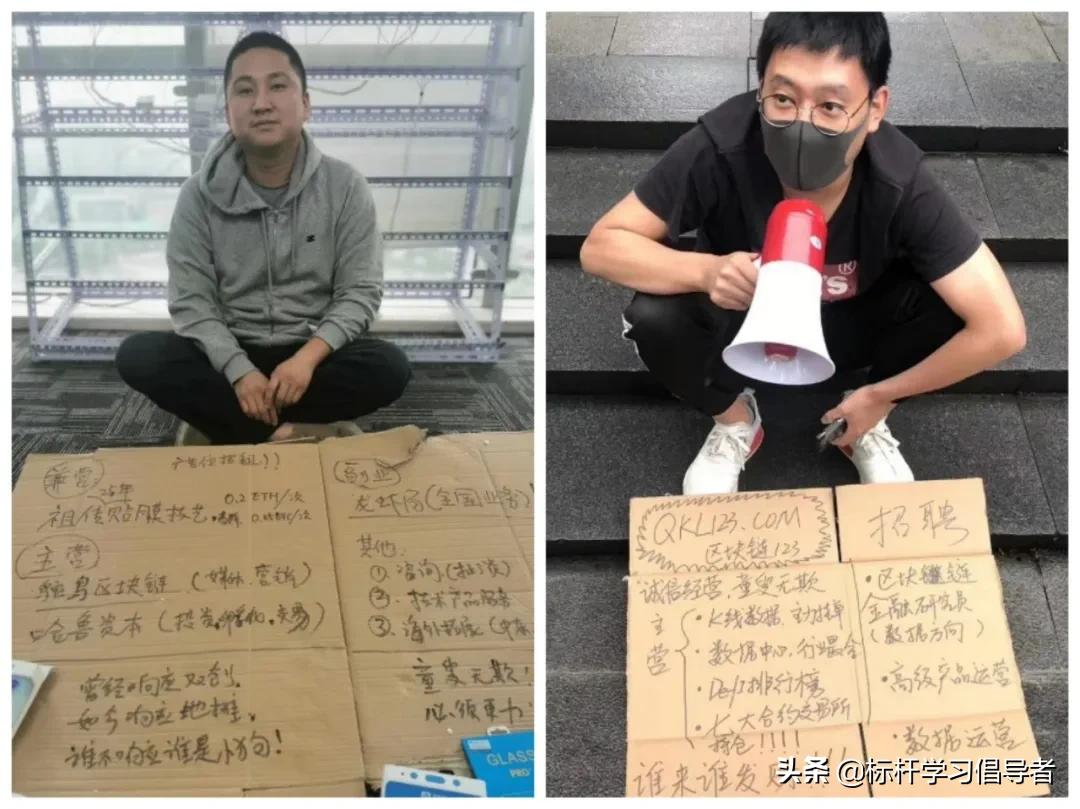 广告位招租!!
兼营
25年
祖传贴膜技艺
0.2 ETH/次
主营
鸵鸟区块链 (媒体、营销)
哈鲁资本 (投资、孵化、交易)
曾经响应双创,
如今响应地摊,
谁不响应谁是小狗!
副业
龙虾局(全国业务)
其他:
① 咨询
② 技术产品服务
③ 海外拓展
童叟无欺!
GLASS
PRO
®
QKL123.COM
区块链123
诚信经营, 童叟无欺
主营
·K线数据, 主力挂单
·数据中心, 行业最全
·Defi排行榜
·大合约交易所
钱包!!!!
招聘
·区块链
金融研究员
(数据方向)
·高级产品运营
·数据运营
谁来谁发财!!!
头条 @标杆学习倡导者